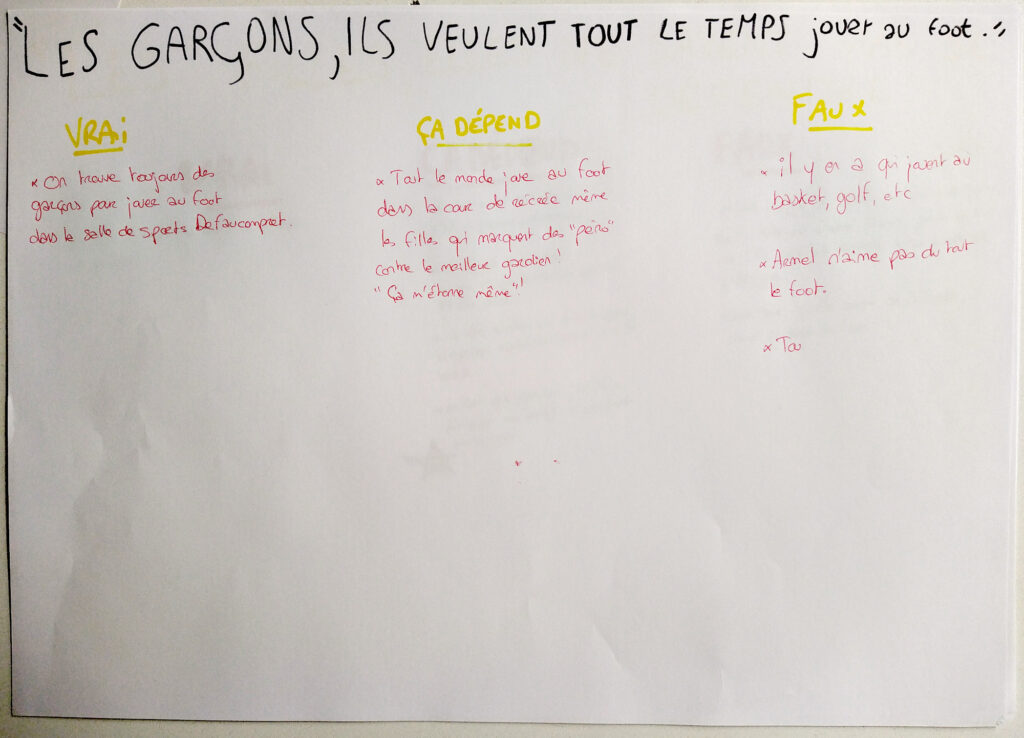 "LES GARÇONS, ILS VEULENT TOUT LE TEMPS jouer au foot."
VRAi
x On trouve toujours des
garçons pour jouer au foot
dans la salle de sports Defaucompret.
ÇA DÉPEND
x Tout le monde joue au foot
dans la cour de récrée même
les filles qui marquent des "péno"
contre le meilleur gardien!
"Ça m'étonne même"!
FAUX
x il y en a qui jouent au
basket, golf, etc
x Armel n'aime pas du tout
le foot.
x Tou